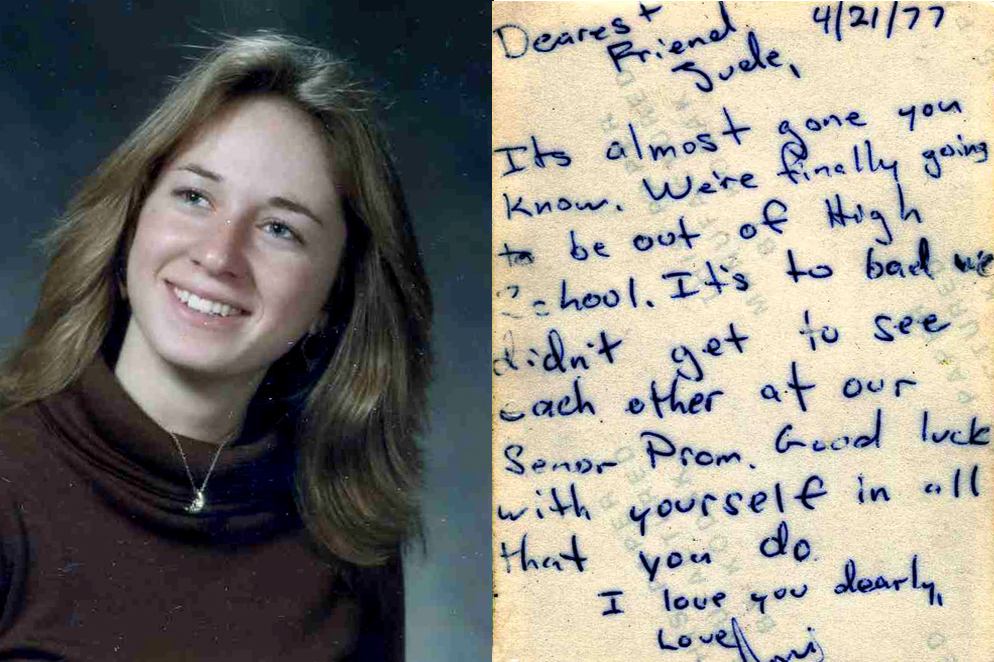 4/21/77
Dearest
Friend
Jude,
Its almost gone you
know. We're finally going
to be out of High
School. It's to bad we
didn't get to see
each other at our
Senor Prom. Good luck
with yourself in all
that you do.
I love you dearly,
Love